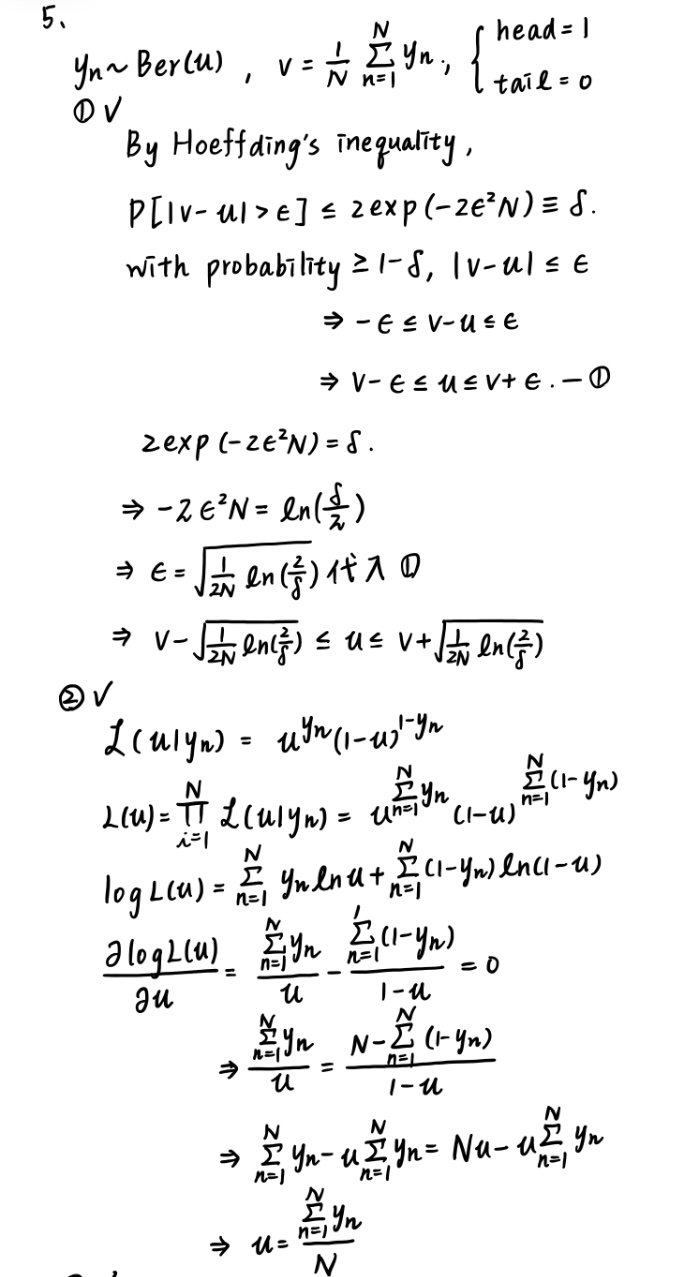 5.
yₙ ~ Ber(u) , v = 1/N Σ_{n=1}^{N} yₙ., { head = 1
tail = 0
① ✓
By Hoeffding's inequality,
P[|v-u| > ϵ] ≤ 2exp(-2ϵ²N) ≡ δ.
with probability ≥ 1-δ, |v-u| ≤ ϵ
⇒ -ϵ ≤ v-u ≤ ϵ
⇒ v-ϵ ≤ u ≤ v+ϵ. — ①
2exp(-2ϵ²N) = δ.
⇒ -2ϵ²N = ln(δ/2)
⇒ ϵ = √(1/2N ln(2/δ)) 代入 ①
⇒ v - √(1/2N ln(2/δ)) ≤ u ≤ v + √(1/2N ln(2/δ))
② ✓
ℒ(u|yₙ) = u^{yₙ} (1-u)^{1-yₙ}
L(u) = Π_{i=1}^{N} ℒ(u|yₙ) = u^{Σ_{n=1}^{N} yₙ} (1-u)^{Σ_{n=1}^{N} (1-yₙ)}
log L(u) = Σ_{n=1}^{N} yₙ ln u + Σ_{n=1}^{N} (1-yₙ) ln(1-u)
∂log L(u)/∂u = Σ_{n=1}^{N} yₙ / u - Σ_{n=1} (1-yₙ) / 1-u = 0
⇒ Σ_{n=1}^{N} yₙ / u = N - Σ_{n=1}^{N} (1-yₙ) / 1-u
⇒ Σ_{n=1}^{N} yₙ - u Σ_{n=1}^{N} yₙ = Nu - u Σ_{n=1}^{N} yₙ
⇒ u = Σ_{n=1}^{N} yₙ / N